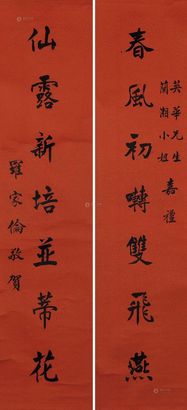 春風初囀雙飛燕
英華先生
蘭湘小姐 嘉禮
仙露新培並蒂花
羅家倫敬賀